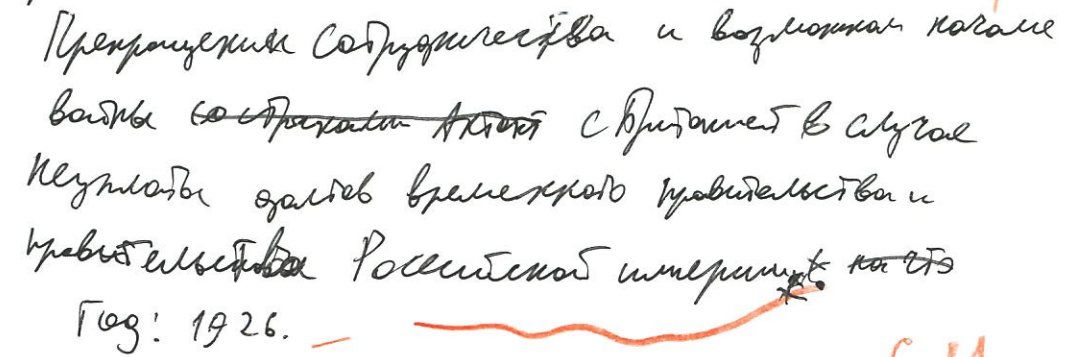 Прекращении сотрудничества и возможном начале
войны со странами Антант с Британией в случае
неуплаты долгов временного правительства и
правительства Российской империи на что
Год: 1926.